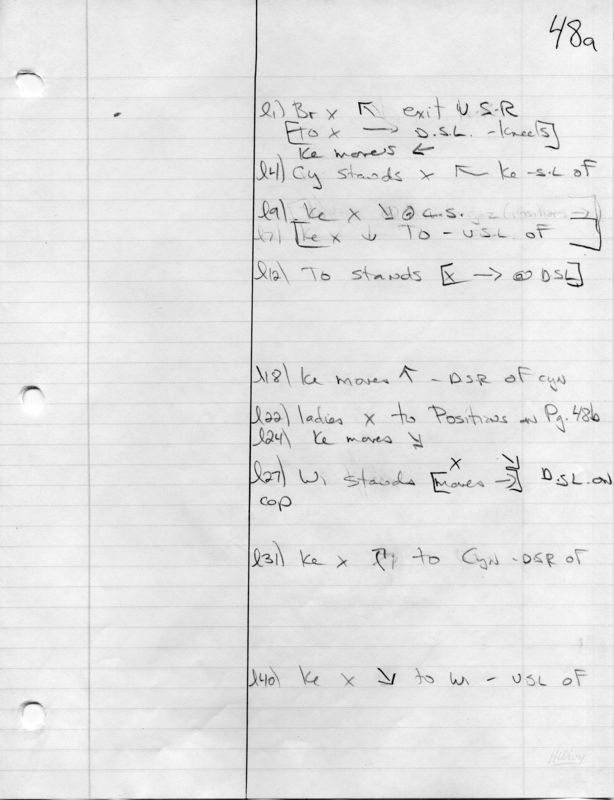 48a
l1) Br x ↖ exit U.S.R
[to x → D.S.L. - kneels]
Ke moves ←
l4) Cy stands x ↖ Ke - S.L of
l9) Ke x ↘ @ C.S.
l7) [Ke x ↓ To - U.S.L. of
l12) To stands [x → @ DSL]
l18) Ke moves ↑ - DSR of cyn
l22) ladies x to Positions on Pg. 48b
l24) Ke moves ↘
l27) Wi stands [moves →] D.S.L. on
x ↘
cop
l31) Ke x to Cyn - DSR of
l40) Ke x ↘ to Wi - USL of
Hilroy